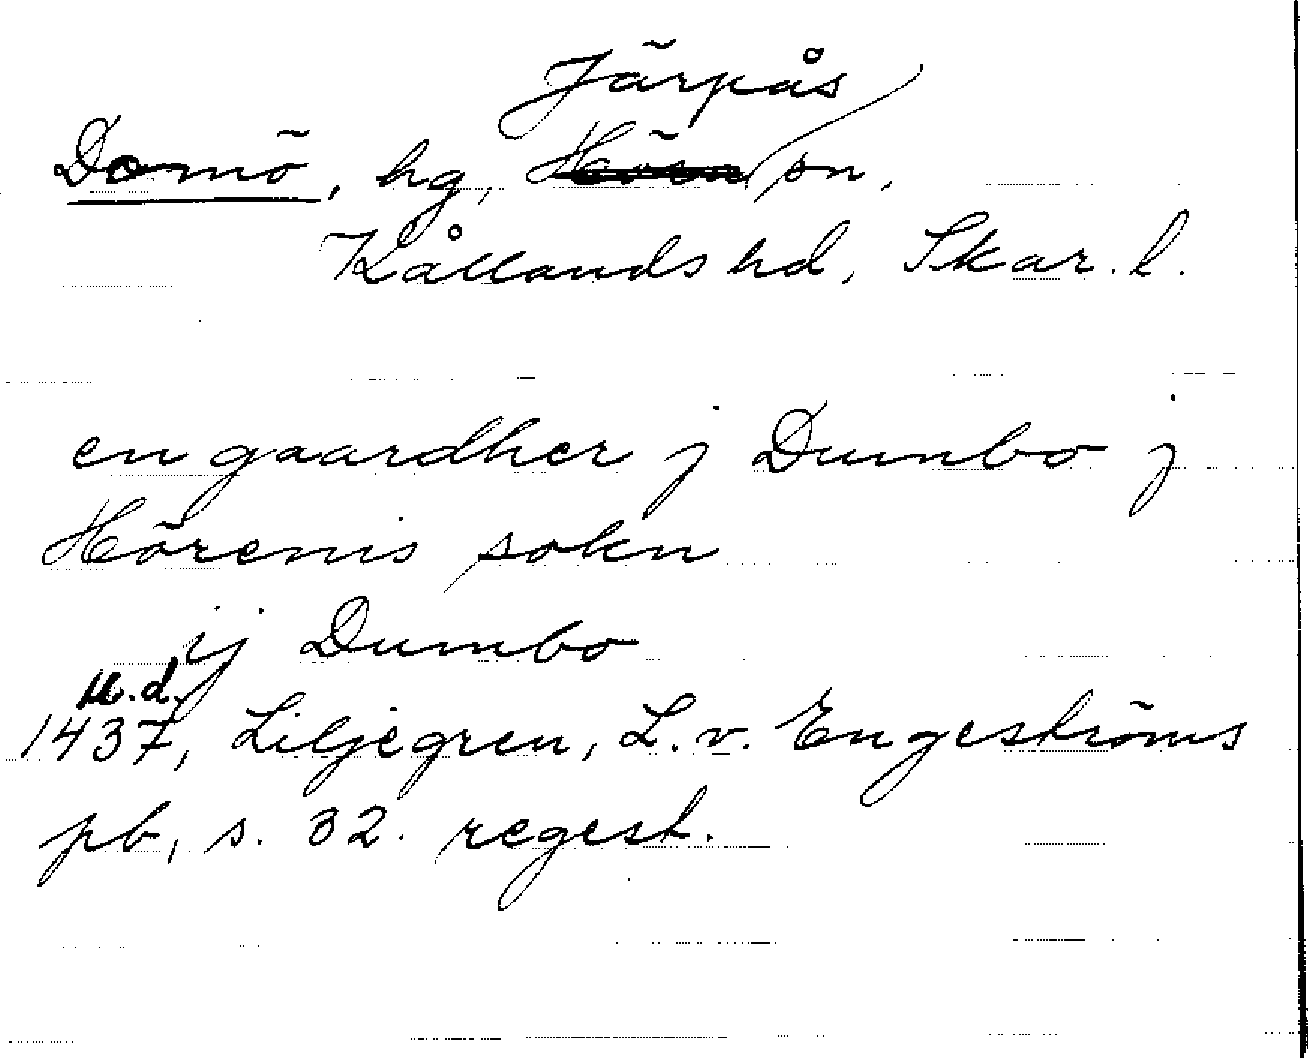 Järpås
Domö, hg, Hörn sn,
Kållands hd, Skar. l.
en gaardher j Dumbo j
Hörenis sokn
ij Dumbo
U.d.
1437, Liljegren, L. v. Engeströms
pb, s. 32. regest.